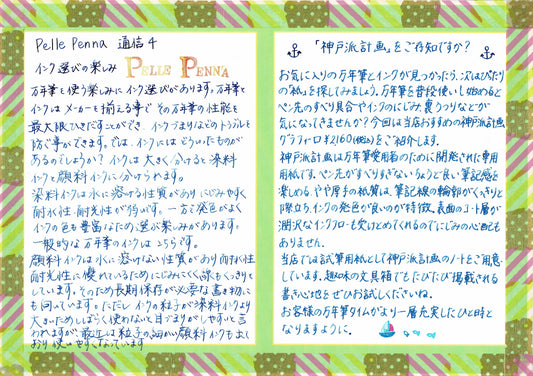 Pelle Penna 通信4
インク選びの楽しみ PELLE PENNA
万年筆を使う楽しみにインク選びがあります。万年筆と
インクはメーカーを揃える事でその万年筆の性能を
最大限ひきだすことができ、インクづまりなどのトラブルを
防ぐ事ができます。では、インクにはどういったものが
あるのでしょうか?インクは大きく分けると染料
インクと顔料インクに分けられます。
染料インクは水に溶ける性質がありにじみやすく
耐水性・耐光性が弱いです。一方で発色がよく
インクの色も豊富なため選ぶ楽しみがあります。
一般的な万年筆のインクはこちらです。
顔料インクは水に溶けない性質があり耐水性
耐光性に優れているためにじみにくく線もくっきりと
しています。そのため長期保存が必要な書き物に
も向っています。ただしインクの粒子が染料インクより
大きいためしばらく使わないと目づまりがしやすいと言
われますが、最近は粒子の細かい顔料インクも出て
おり使いやすくなっています
「神戸派計画」をご存知ですか?
お気に入りの万年筆とインクが見つかったら、次はぴったり
の「紙」を探してみましょう。万年筆を普段使いし始めると
ペン先のすべり具合やインクのにじみ、裏うつりなどが
気になってきませんか?今回は当店おすすめの神戸派計画
グラフィーロ¥2,160(税込)をご紹介します。
神戸派計画は万年筆愛用者のために開発された専用
用紙です。ペン先がすべりすぎないちょうど良い筆記感を
楽しめる、やや厚手の紙質は、筆記線の輪郭がくっきりと
際立ち、インクの発色が良いのが特徴。表面のコート層が
潤沢なインクフローも受けとめてくれるのでにじみの心配も
ありません。
当店では試筆用紙として神戸派計画のノートをご用意
しています。趣味の文具箱でもたびたび掲載される
書き心地をぜひお試しくださいね。
お客様の万年筆タイムがより一層充実したひと時と
なりますように。